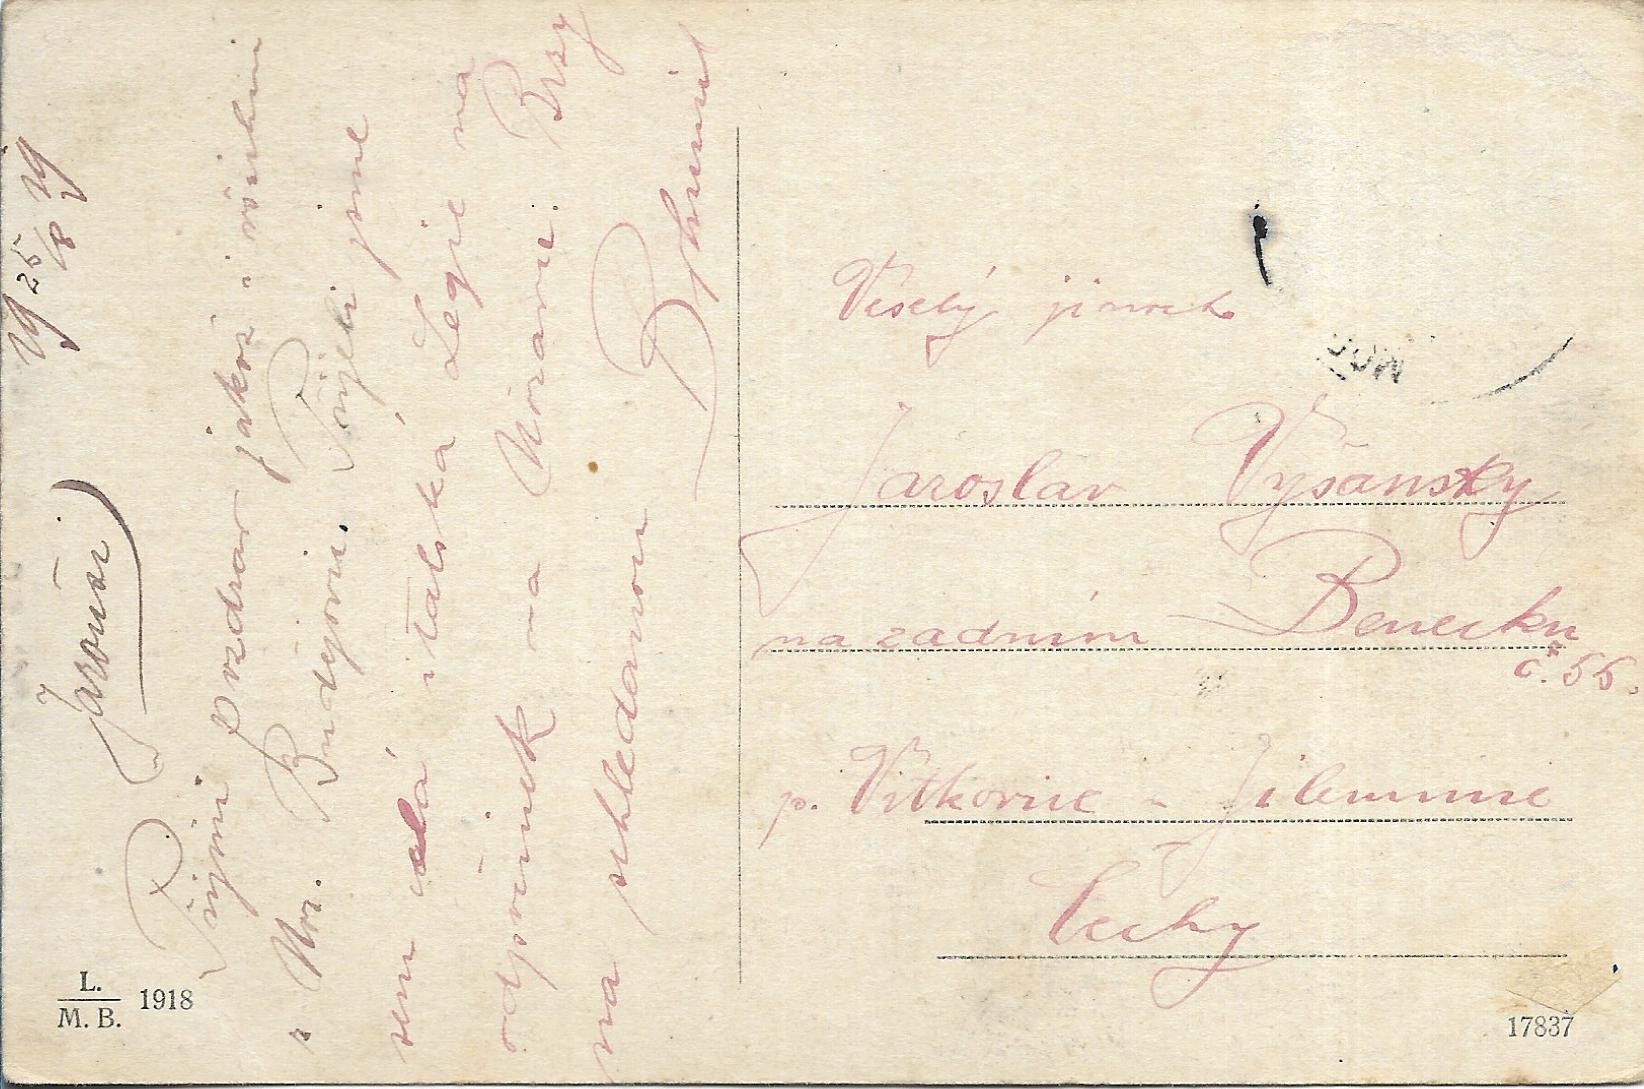 19 25/8 19
Jarouši
Přijmi pozdrav jakož i všichni
z Mor. Budějovic. Přijeli jsme
sem celá italská Legie na
odpočinek na Moravu. Brzy
na schledanou
Bohumil
Veselý jinoch
Jaroslav Vyšanský
na zadním Benecku
č. 55.
p. Vítkovice - Jilemnice
Čechy
L.
M. B. 1918
17837